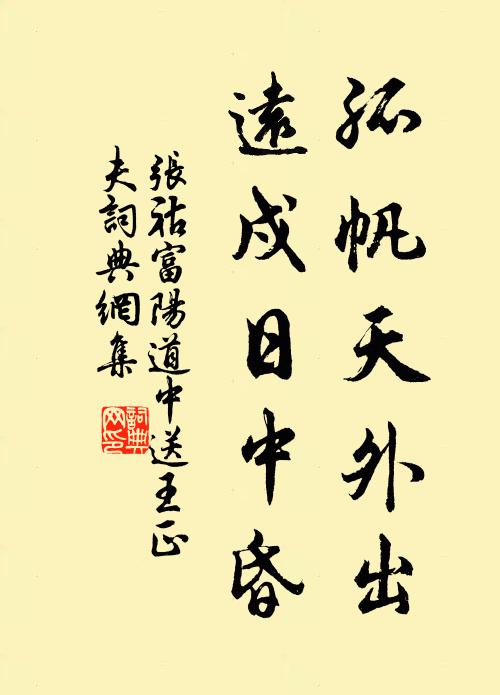 孤帆天外出
遠戍日中昏
張祜富陽道中送王正
夫詞典網集
詞典
网印